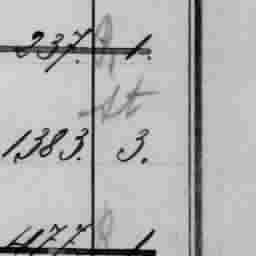 237. 1.
St
1383. 3.
477 1